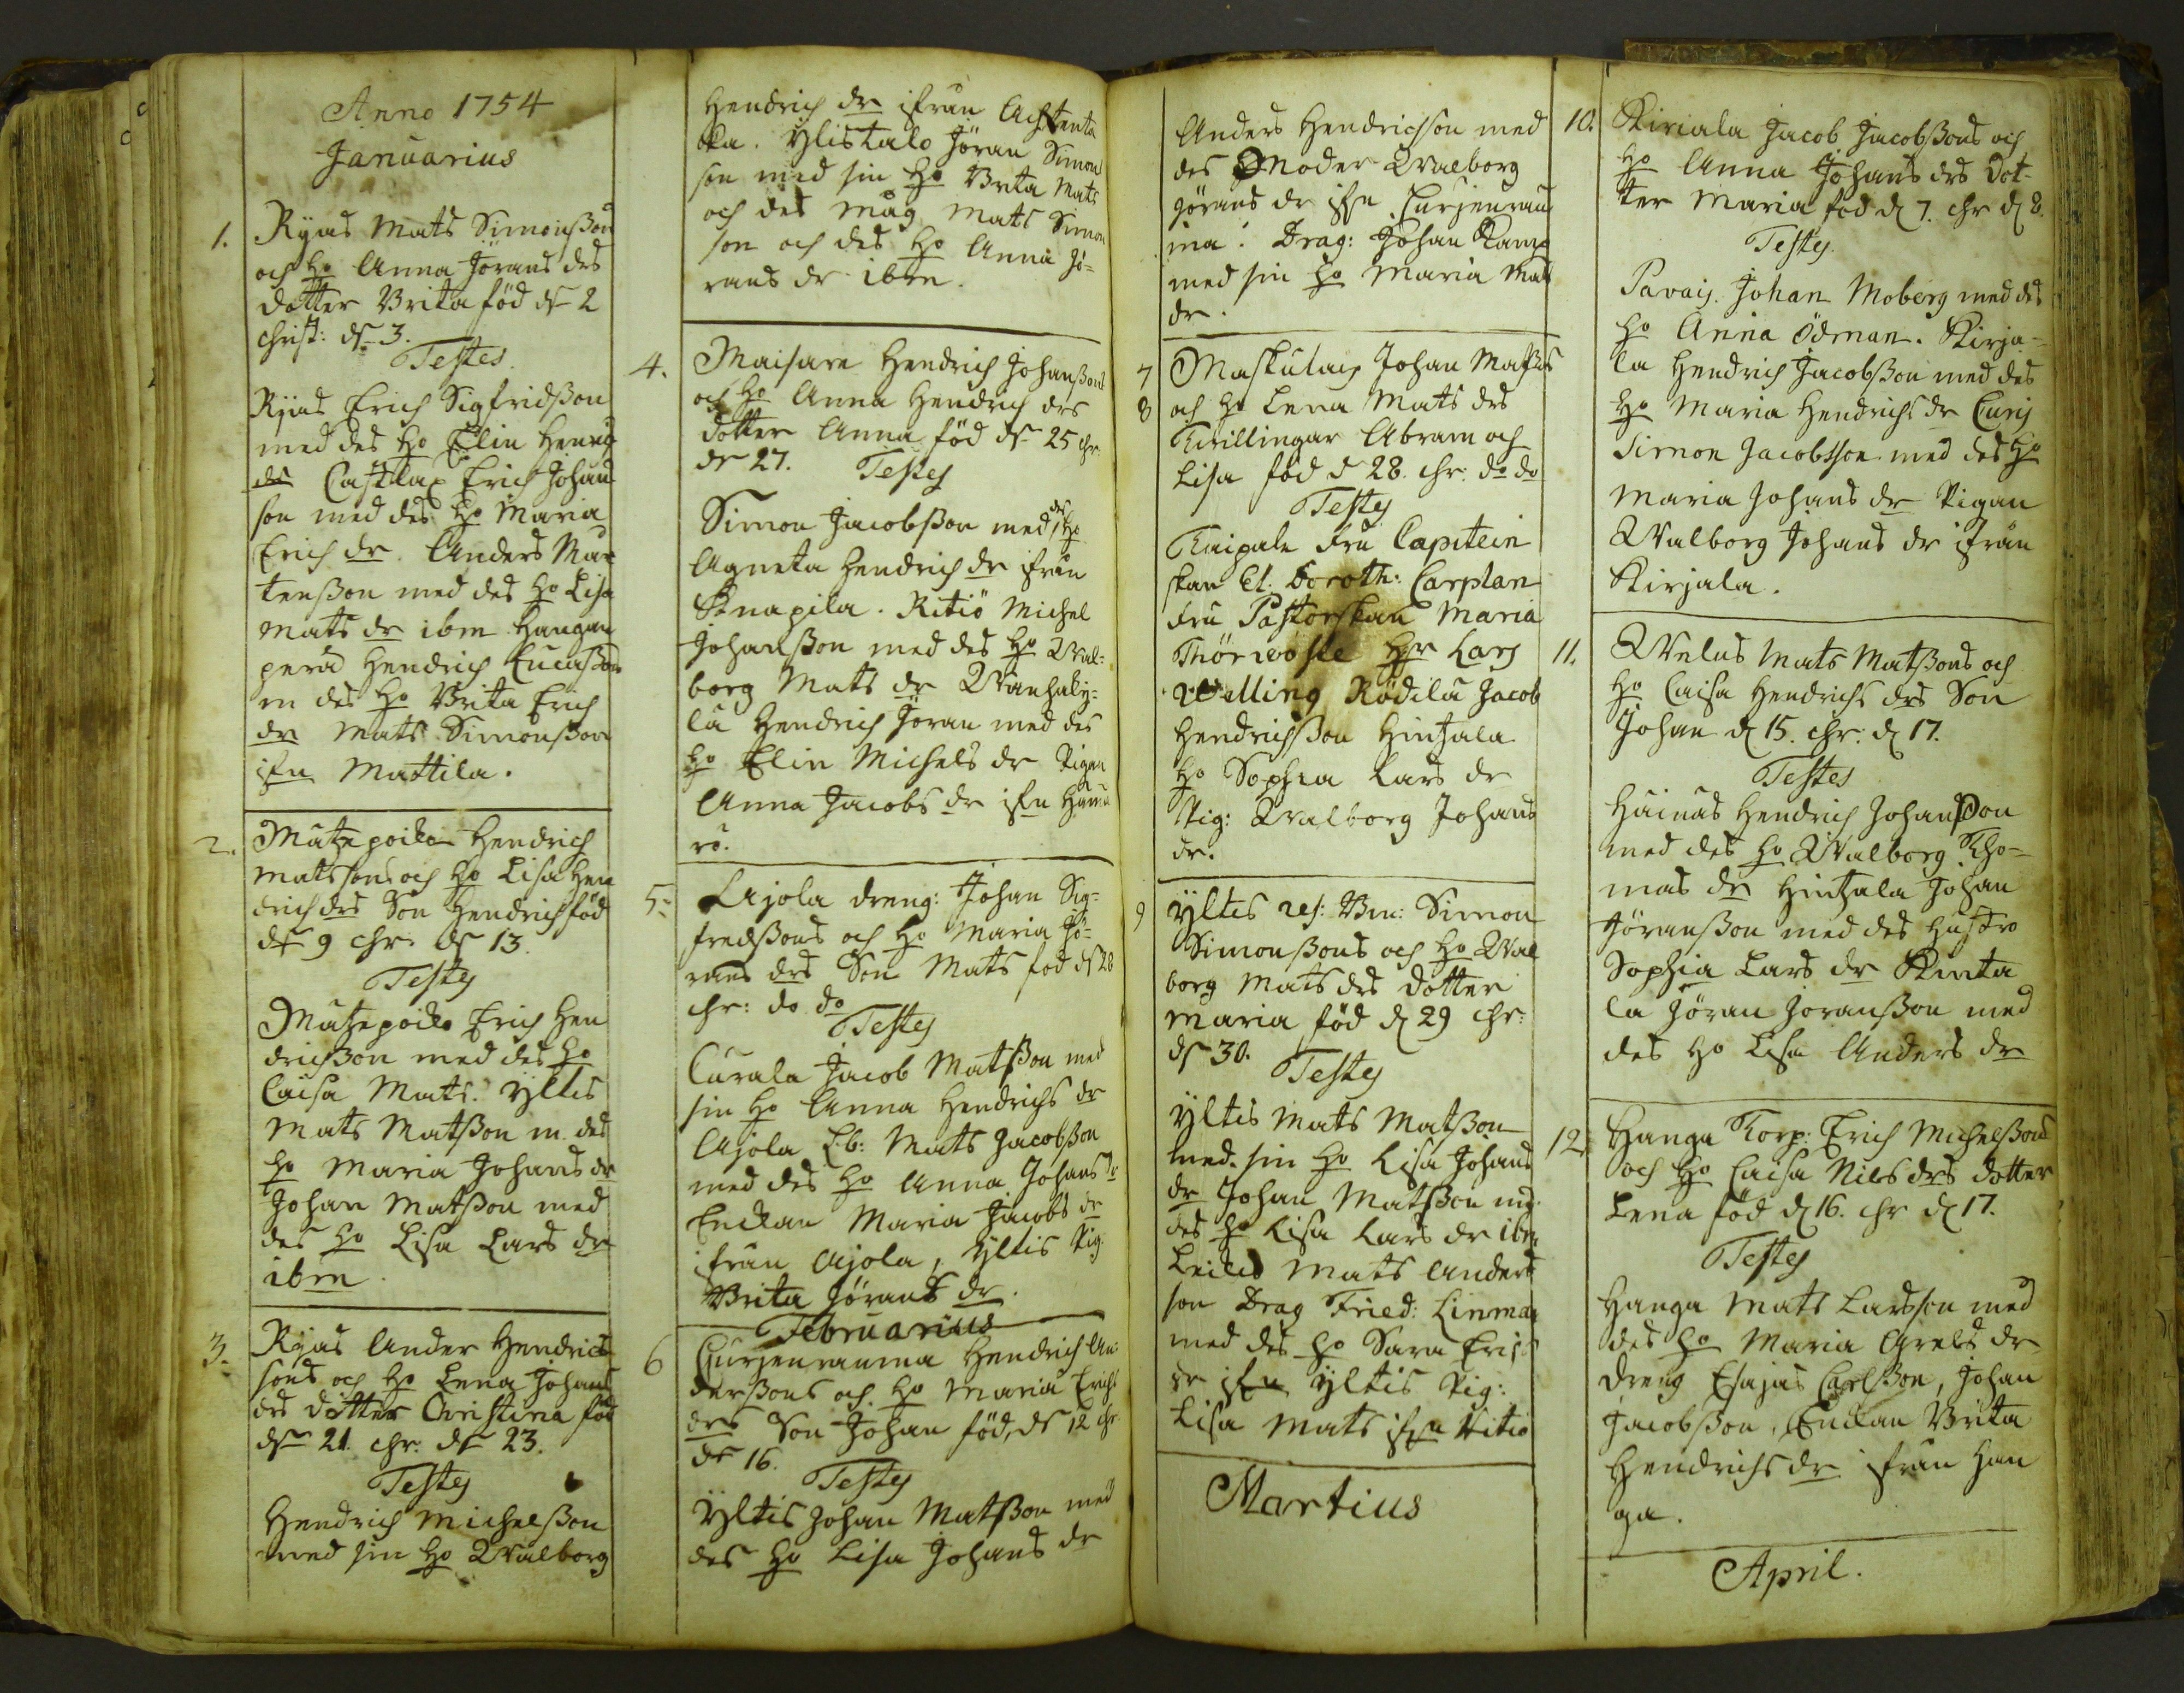 Anno 1754
Januarius
1. Ryas Mats Simonßon
och Ho Anna Jörans drs
dotter Brita född dn 2
christ: dn 3.
Testes.
Ryas Erich Sigfridßon
med des Ho Elin Henrich
dr Castelax Erich Johan
son med des Ho Maria
Erich dr. Anders Mar
tenßon med des Ho Lisa
Mats dr ibm Hangan
perä Hendrich Lucasßon
m des Ho Brita Erich
dr Mats Simonßon
ifrn Mattila.
2. Mätzepoike Hendrich
Matssons och Ho Lisa Hen
drich drs Son Hendrich född
dn 9 chr: dn 13.
Testes
Mätzepoike Erich Hen
drichßon med des Ho
Caisa Mats. Yltis
Mats Matßon m. des
Ho Maria Johans dr
Johan Matßon med
des Ho Lisa Lars dr
ibm.
3. Ryas Ander Hendrich
sons och Ho Lena Johans
drs dotter Christina född
dn 21. chr: dn 23.
Testes
Hendrich Michelßon
med sin Ho Walborg
Hendrich dr ifrån
ka. Ylistalo Jöran Simon
son med sin Ho Brita Mats
och des måg Mats Simon
son och des Ho Anna Jö-
rans dr ibm.
4. Maisare Hendrich Johanßons
och Ho Anna Hendrich drs
dotter Anna född dn 25 chr
dn 27. Testes
Simon Jacobßon med des Ho
Agneta Hendrich dr ifrån
Knapila. Ritiö Michel
Johanßon med des Ho Wal-
borg Mats dr Wanhaky-
lä Hendrich Jöran med des
Ho Elin Michels dr Pigan
Anna Jacobs dr ifrn Hama
ro.
5. Ajola dreng: Johan Sig-
fredßons och Ho Maria Jö-
rans drs Son Mats född dn 28
chr: do do
Testes
Curala Jacob Matßon med
sin Ho Anna Hendrichs dr
Ajola Lb: Mats Jacobßon
med des Ho Anna Johans dr
Enckan Maria Jacobs dr
ifrån Ajola, Yltis Pig
Brita Jörans dr.
Februarius
6 Curjenrauma Hendrich An-
derßons och Ho Maria Erichs
drs Son Johan född, dn 12 chr
dn 16.
Testes
Yltis Johan Matßon med
des Ho Lisa Johans dr
Anders Hendrichson med
des Moder Walborg
Görans dr ifrn Curjenrau
ma. Drag: Johan Kamp
med sin Ho Maria Mats
dr.
7 Maskulais Johan Matßons
8 och Ho Lena Mats drs
Twillingar Abram och
Lisa född d 28. chr: do do
Testes
Knipale Fru Capitein
skan El. Doroth: Carplan
Fru Pastorskan Maria
Thörwöste Hr Lars
Welling Rödilä Jacob
Hendrichßon Hintzala
Ho Sophia Lars dr
Pig: Walborg Johans
dr.
9 Yltis res: Bm: Simon
Simonßons och Ho Wal
borg Mats drs dotter
Maria född d 29 chr:
dn 30.
Testes
Yltis Mats Matßon
med. sin Ho Lisa Johans
dr Johan Matßon md
des Ho Lisa Lars dr ibm
Leiles Mats Anders
son Drag Fried: Linman
med des Ho Sara Erichs
dr ifrn Yltis Pig:
Lisa Mats ifrn Ritiö
Martius
10. Kiriala Jacob Jacobßons och
Ho Anna Johans drs dot-
ter Maria född d 7. chr d 8.
Testes.
Pavais. Johan Moberg med des
Ho Anna Ödman. Kirja-
la Hendrich Jacobßon med des
Ho Maria Hendrichs dr Curis
Simon Jacobsson med des Ho
Maria Johans dr Pigan
Walborg Johans dr ifrån
Kirjala.
11. Welus Mats Matßons och
Ho Caisa Hendrichs drs Son
Johan d 15. chr: d 17.
Testes
Häinäs Hendrich Johanßon
med des Ho Walborg Tho-
mas dr Hintzala Johan
Jöranßon med des Hustro
Sophia Lars dr Kirita
la Jöran Joranßon med
des Ho Lisa Anders dr
12. Hanga Korp: Erich Michelßons
och Ho Caisa Nils drs dotter
Lena född d 16. chr d 17.
Testes
Hanga Mats Larsson med
des Ho Maria Grels dr
dreng Esajas Carlßon, Johan
Jacobßon, Enckan Brita
Hendrichs dr ifrån Han
ga.
April.